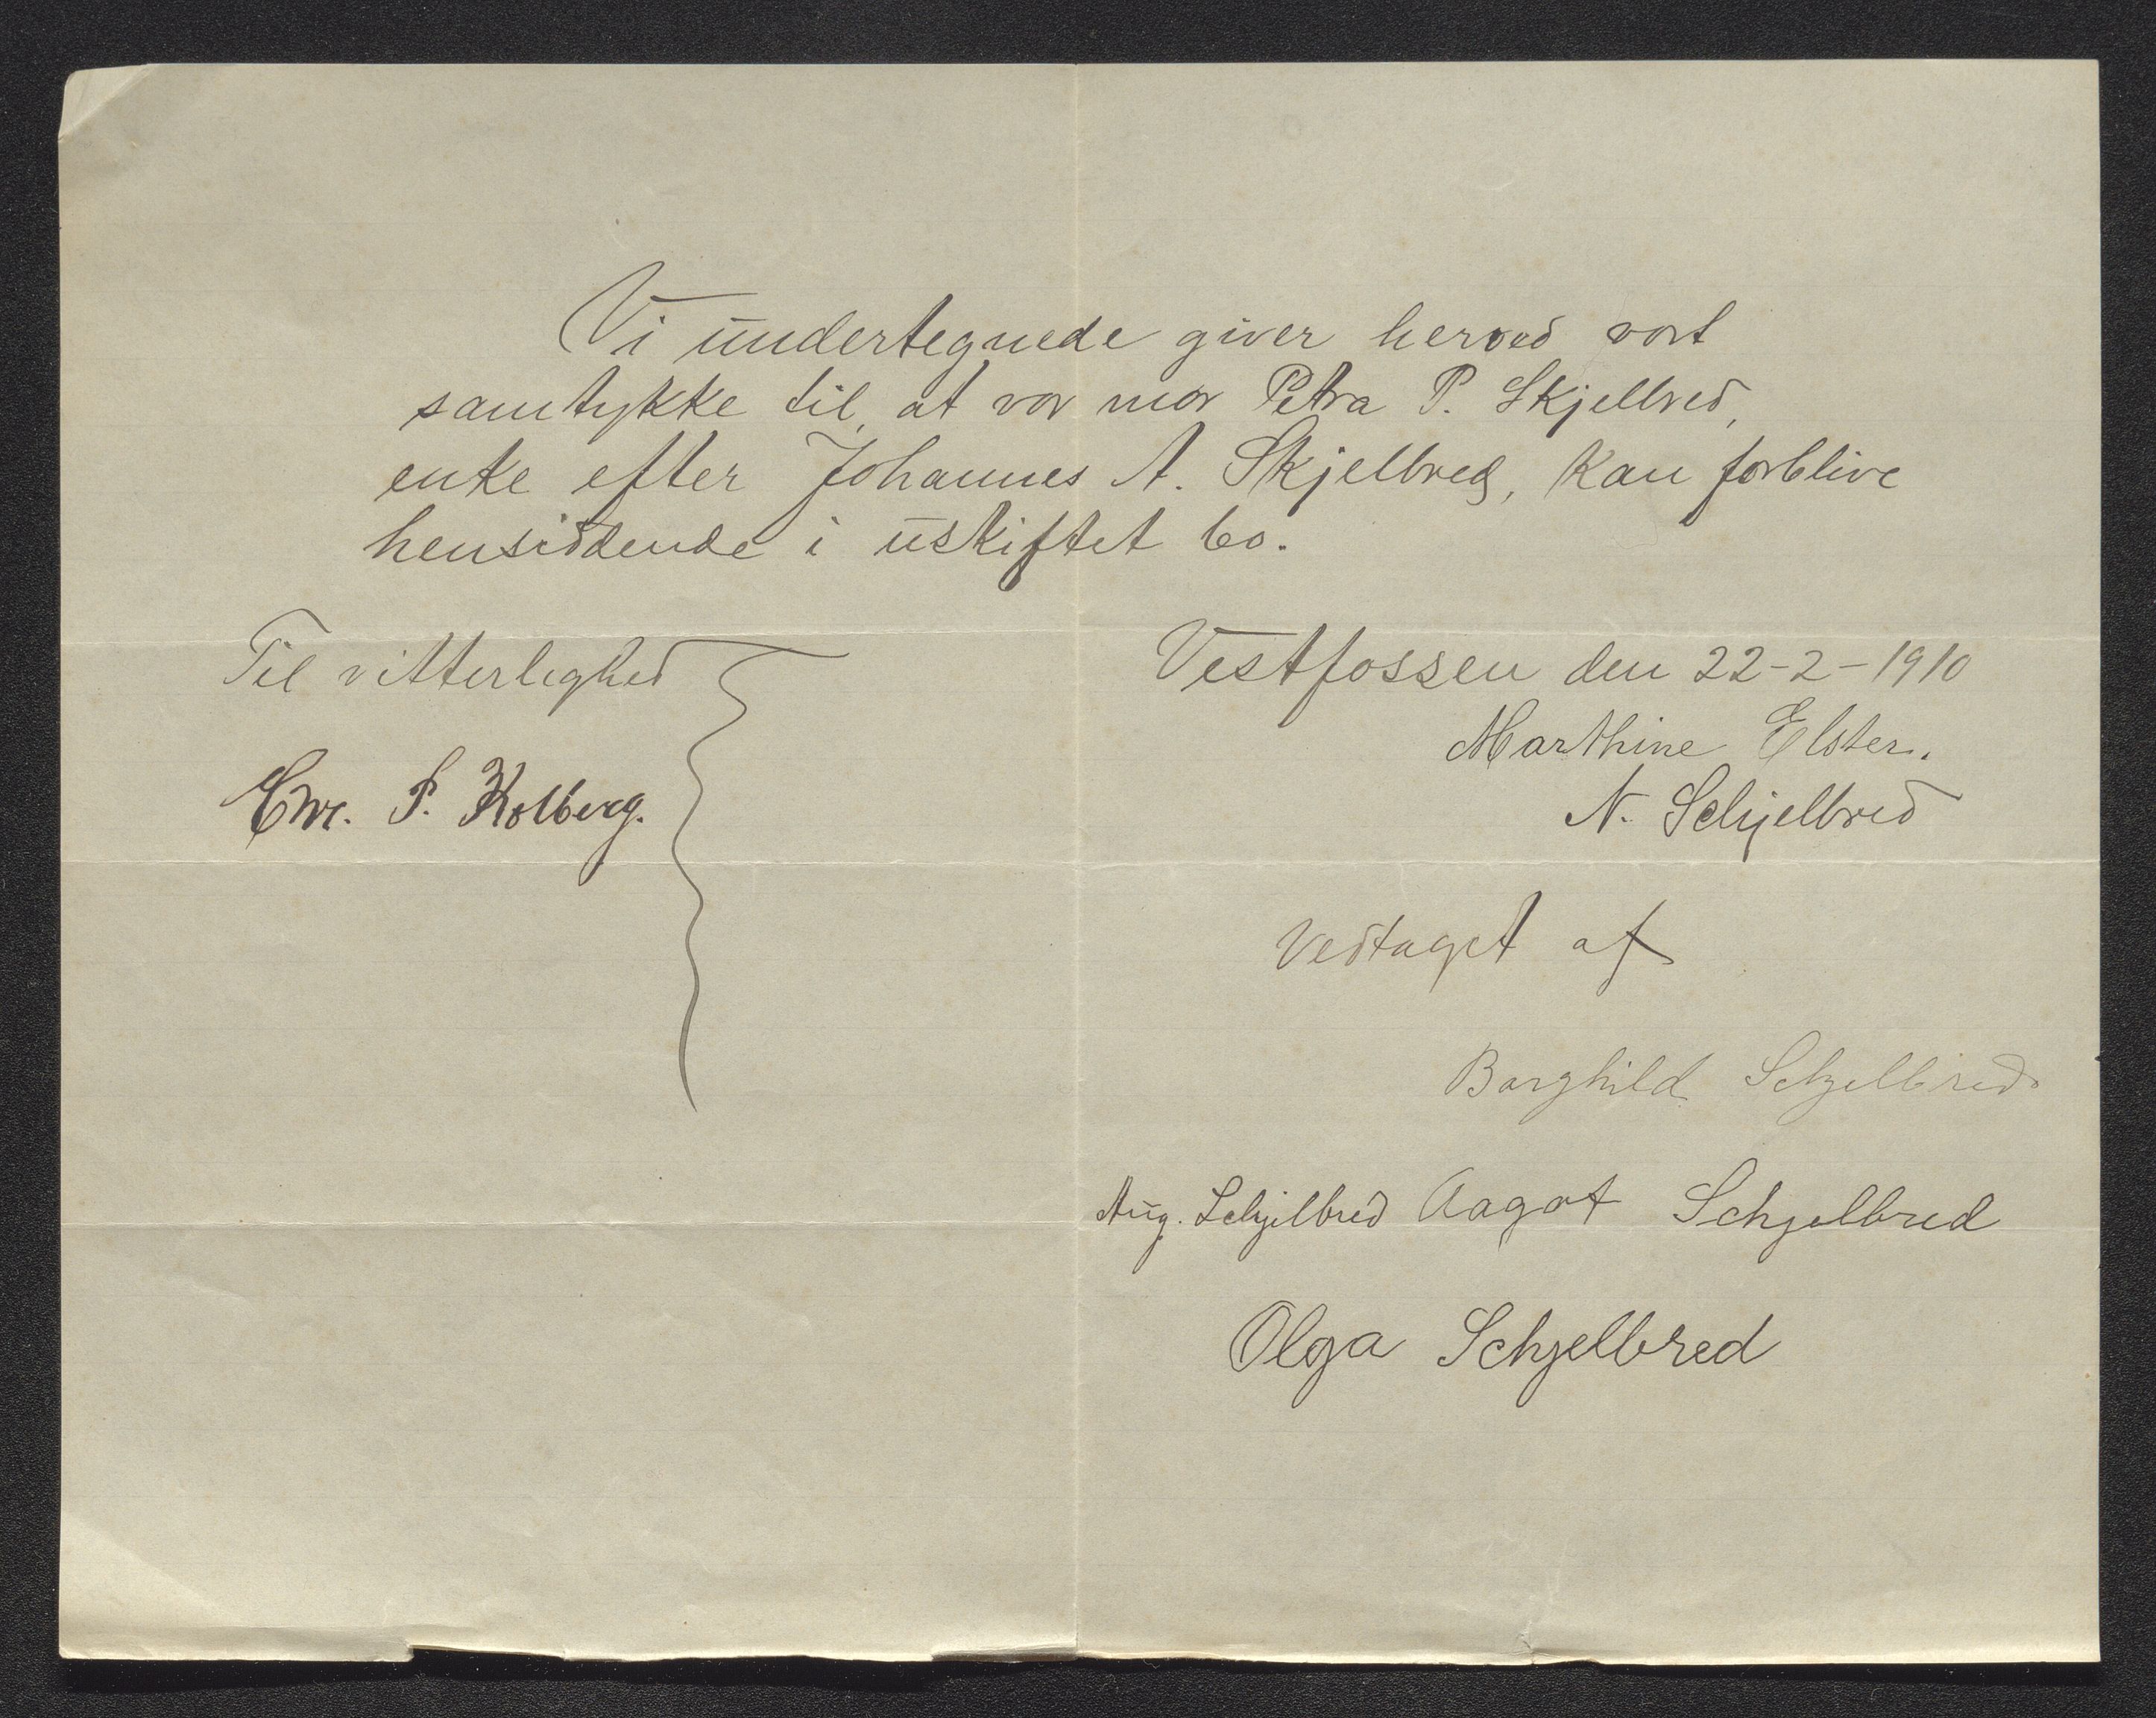 Vi undertegnede giver herved vort
samtykke til, at vor mor Petra P. Skjelbred,
enke efter Johannes A. Skjelbred, kan forblive
hensiddende i uskiftet bo.
Til vitterlighed
P. Kolberg.
Vestfossen den 22-2-1910
Marthine Elster.
N. Schjelbred
Vedtaget af
Borghild Schjelbred
Aug. Schjelbred Aagot Schjelbred
Olga Schjelbred